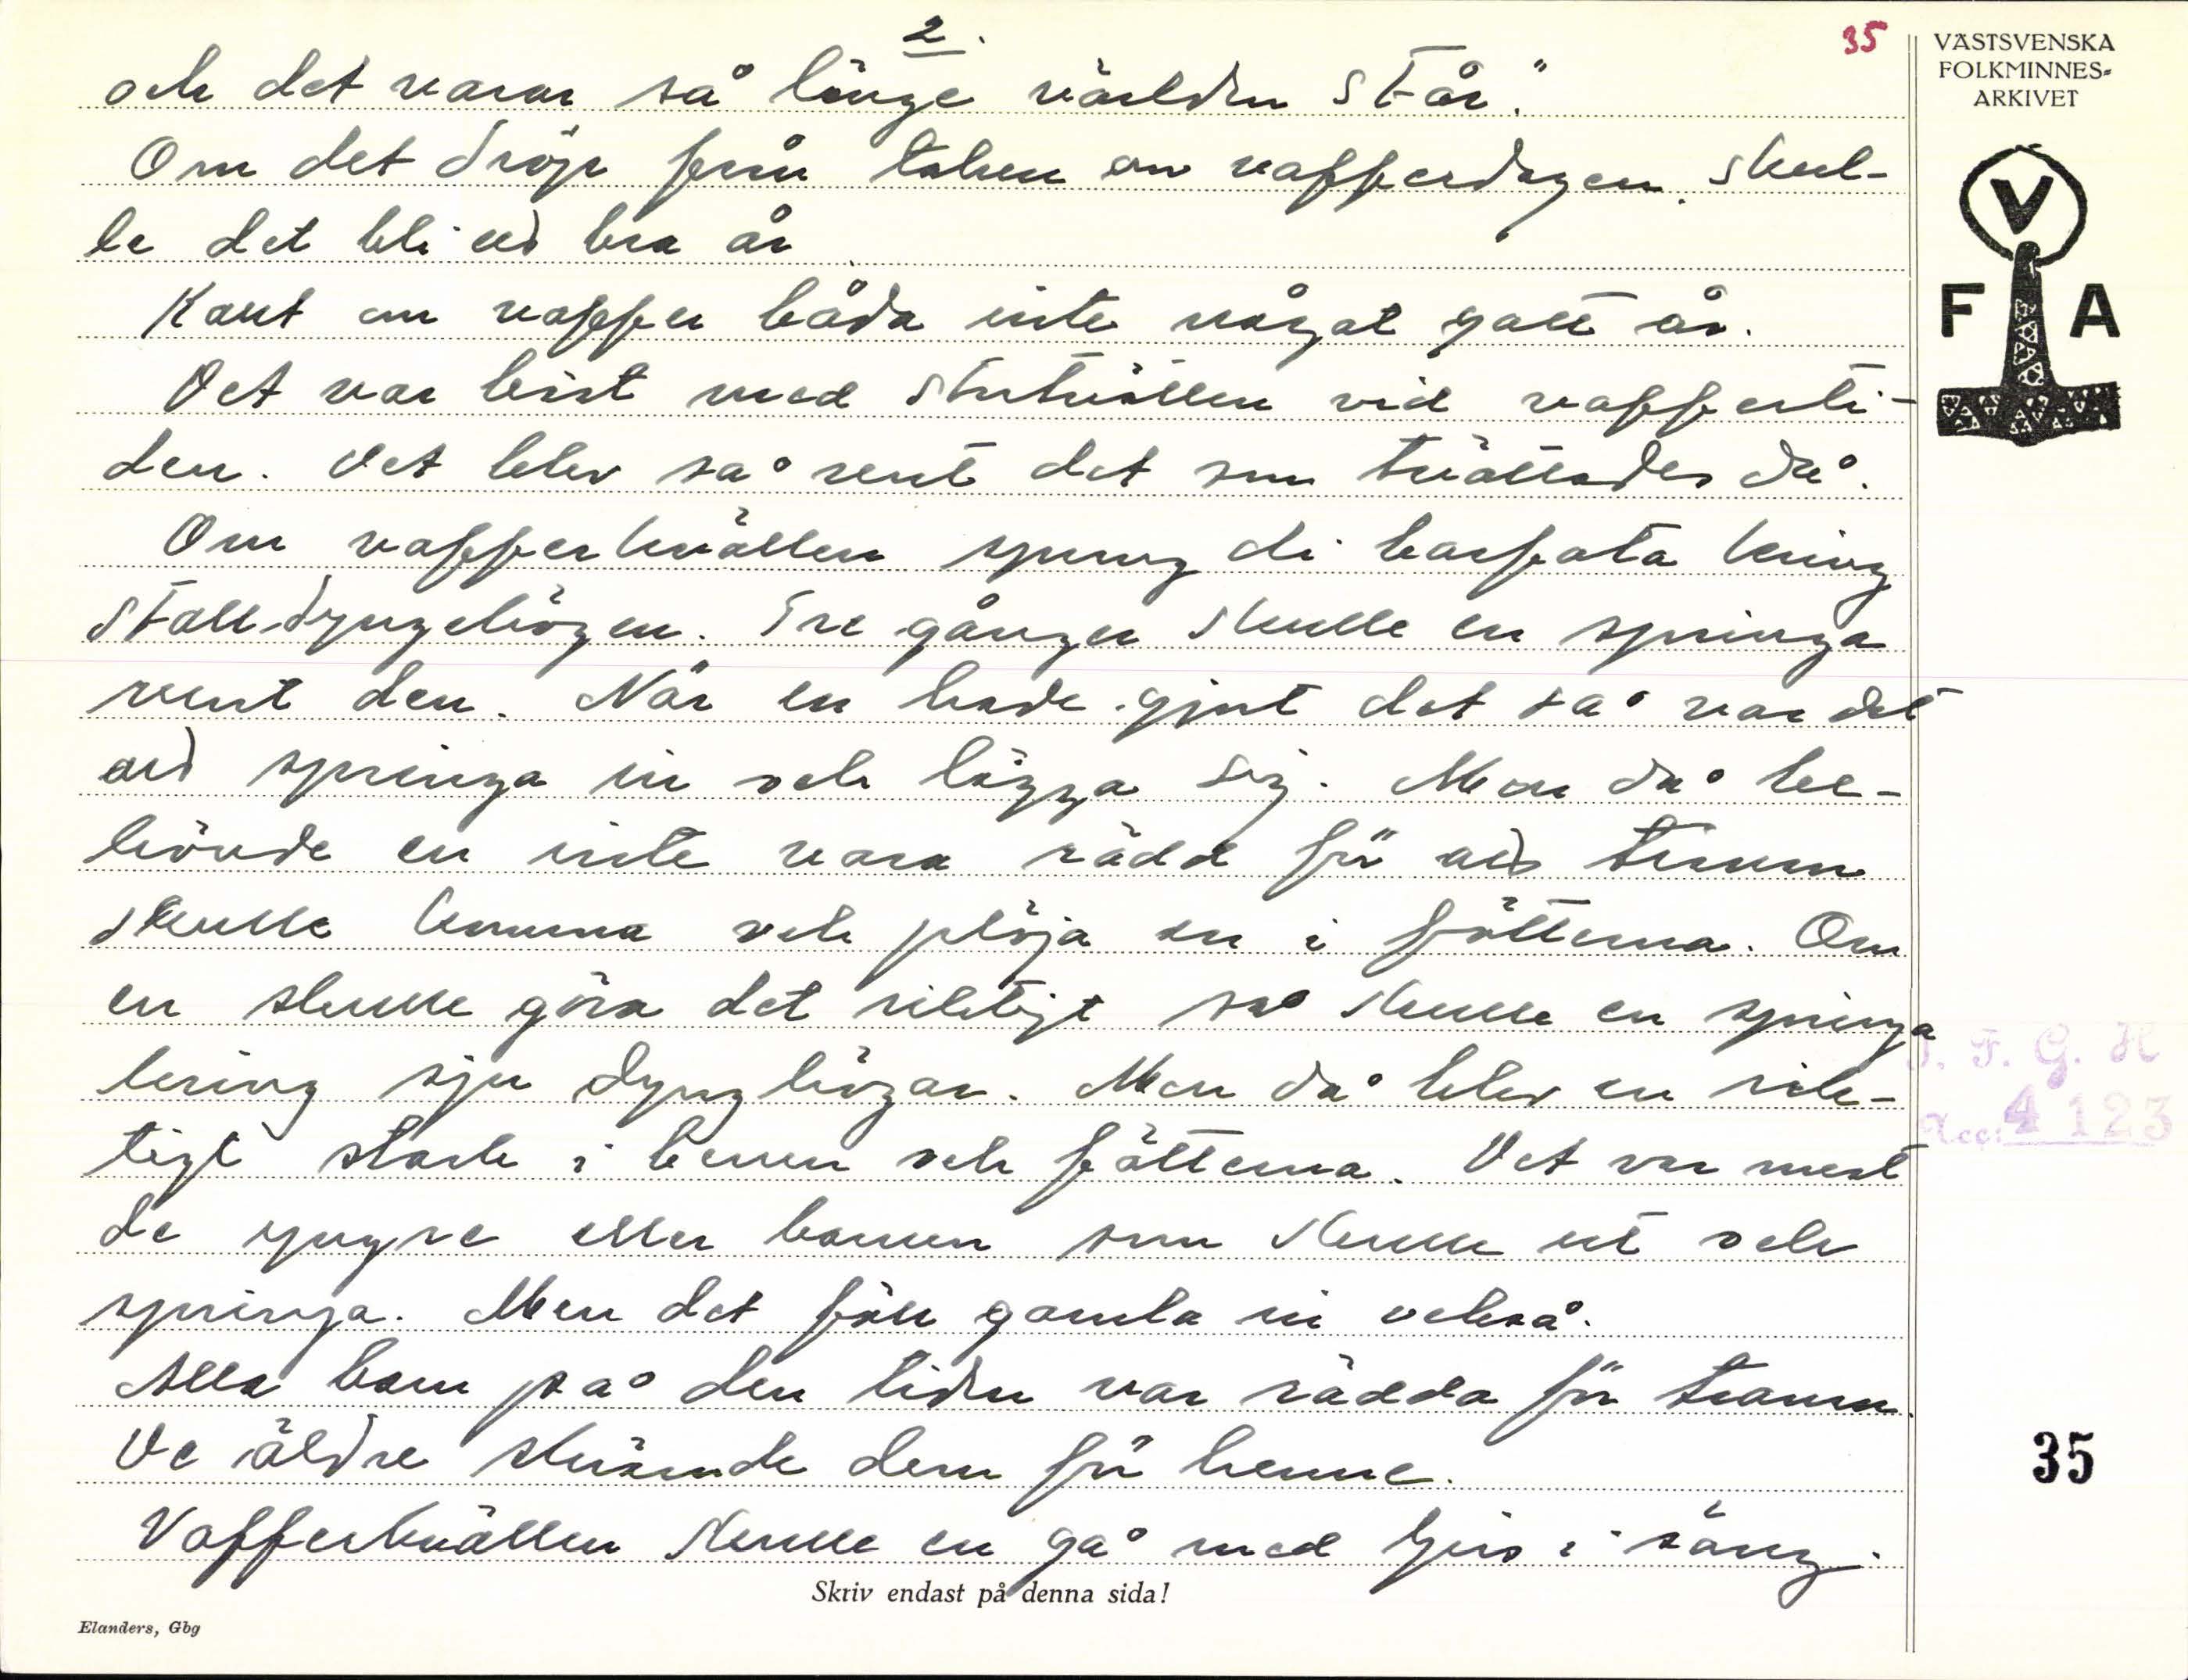 2.
35
och det varar så länge världen står."
Om det dröjp från taken om vafferdagen skul-
le det bli ed bra år
Kaut om vaffer båda inte något gott år.
Det var bäst med stortvätten vid vafferti-
den. Det blev så rent det som tvättades då.
Om vafferkvällen sprang di barfota kring
stalldyngehögen. Tre gånger skulle en springa
runt den. När en hade gjort det så var det
ad springa in och lägga sig. Men då be-
hövde en inte vara rädd för ad tranan
skulle komma och plöja en i fötterna. Om
en skulle göra det riktigt så skulle en springa
kring sju dynghögar. Men då blev en rik-
tigt stark i benen och fötterna. Det var mest
de yngre eller barnen som skulle ut och
springa. Men det föll gamla in också.
Alla barn på den tiden var rädda för tranan.
De äldre skrämde dem för henne.
Vafferkvällen skulle en gå med ljus i säng.
Skriv endast på denna sida!
Elanders, Gbg
VÄSTSVENSKA
FOLKMINNES-
ARKIVET
V
F A
I. F. G. H
Acc: 4123
35